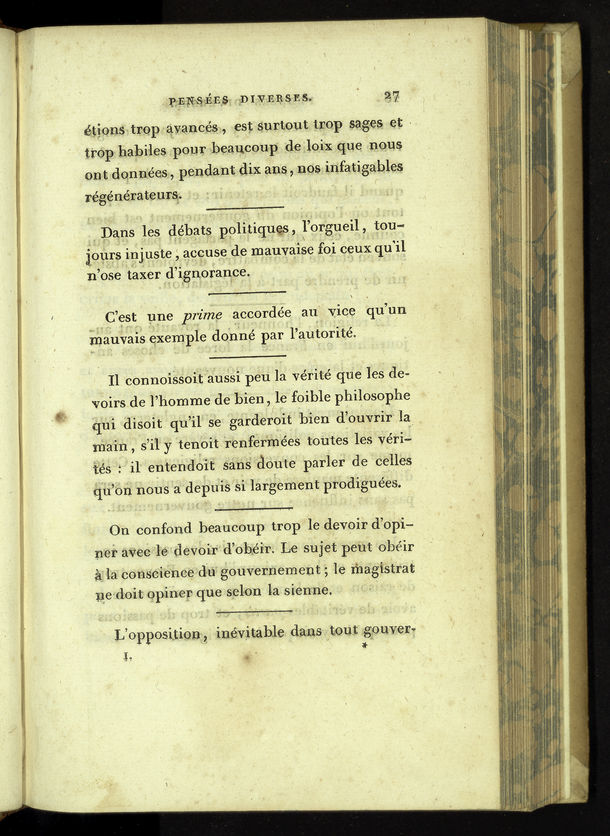 PENSÉES DIVERSES. 27
étions trop avancés, est surtout trop sages et
trop habiles pour beaucoup de loix que nous
ont données, pendant dix ans, nos infatigables
régénérateurs.
Dans les débats politiques, l'orgueil, tou-
jours injuste, accuse de mauvaise foi ceux qu'il
n'ose taxer d'ignorance.
C'est une prime accordée au vice qu'un
mauvais exemple donné par l'autorité.
Il connoissoit aussi peu la vérité que les de-
voirs de l'homme de bien, le foible philosophe
qui disoit qu'il se garderoit bien d'ouvrir la
main, s'il y tenoit renfermées toutes les véri-
tés : il entendoit sans doute parler de celles
qu'on nous a depuis si largement prodiguées.
On confond beaucoup trop le devoir d'opi-
ner avec le devoir d'obéir. Le sujet peut obéir
à la conscience du gouvernement ; le magistrat
ne doit opiner que selon la sienne.
L'opposition, inévitable dans tout gouver-
I. *